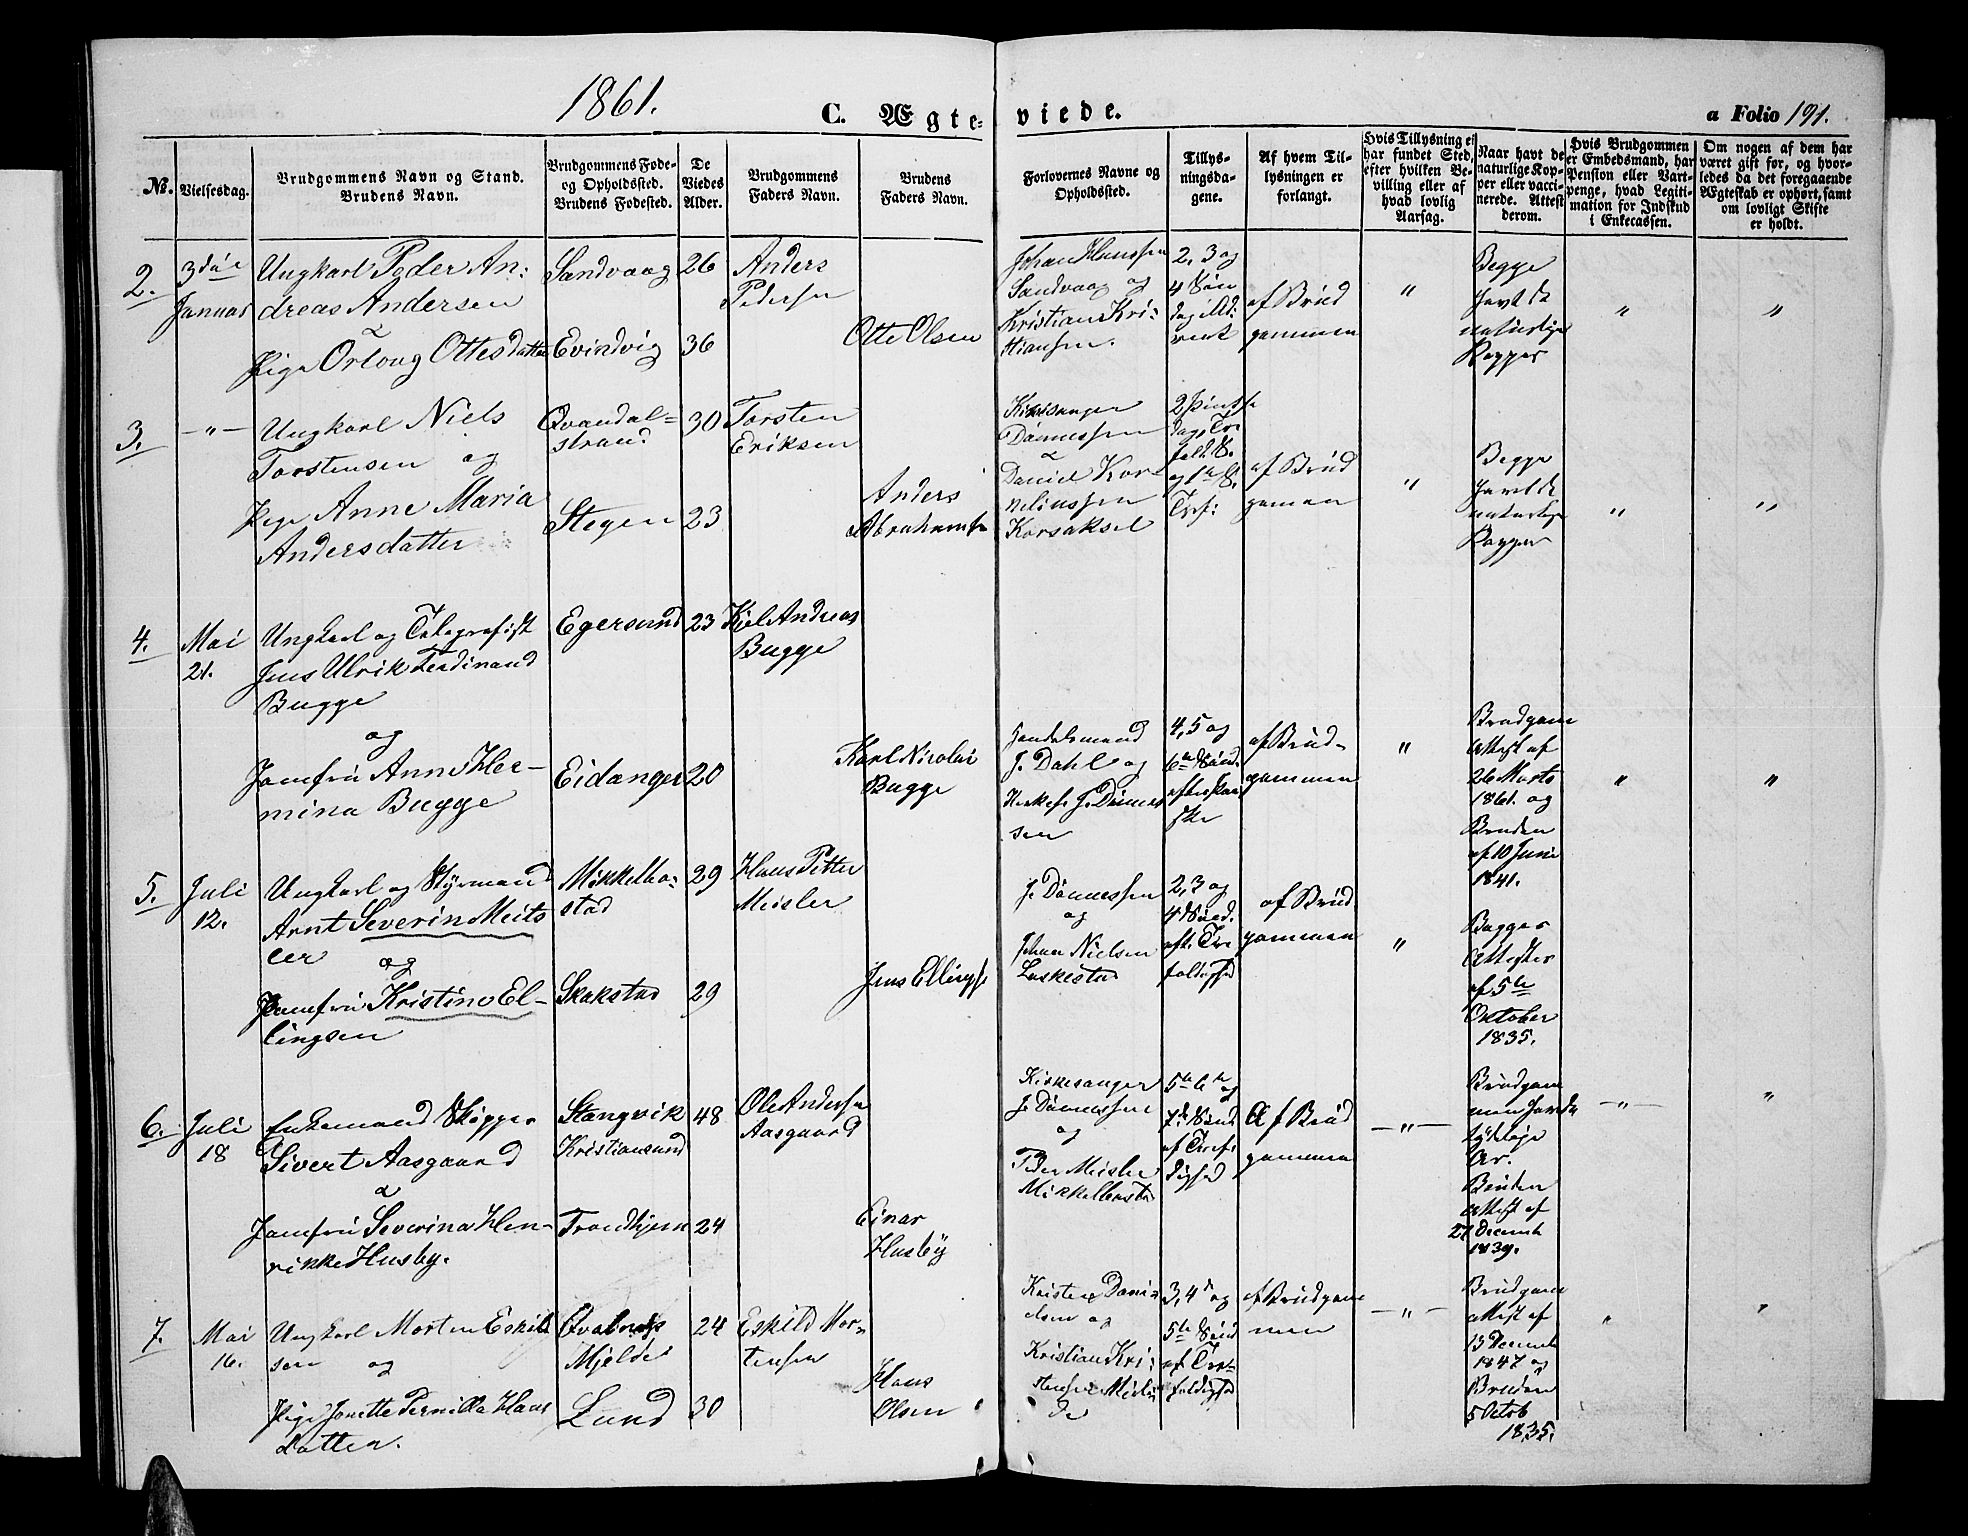 1861.
C. Ægte-
viede.
a Folio 191.
No.
Vielsesdag.
Brudgommens Navn og Stand.
Brudens Navn.
Brudgommens Føde-
og Opholdssted.
Brudens Fødested.
De
Viedes
Alder.
Brudgommens
Faders Navn.
Brudens
Faders Navn.
Forlovernes Navne og
Opholdssted.
Tillys-
ningsda-
gene.
Af hvem Til-
lysningen er
forlangt.
Hvis Tillysning ei
har fundet Sted,
efter hvilken Be-
villing eller af
hvad lovlig
Aarsag.
Naar havt de
naturlige Kop-
per eller vacci-
nerede. Attest
derom.
Hvis Brudgommen
er Embedsmand, har
Pension eller Vart-
penge, hvad Legiti-
mation for Indskud
i Enkecassen.
Om nogen af dem har
været gift før, og hvor-
ledes da det foregaaende
Ægteskab er ophørt, samt
om lovligt Skifte
er holdt.
2.
3die
Januar
Ungkarl Peder An:
dreas Andersen
Pige Orloug Ottesdatter
Sandvaag
Evindvig
26
36
Anders
Pedersen
Otte Olsen
Johan Hanssen
Sandvaag og
Kristian Kri:
stiansen.
2, 3 og
4 Søn
dag i Ad:
vent
af Brud
gommen
"
Begge
havt de
naturlige
Kopper
"
"
3.
-"-
Ungkarl Niels
Torstensen og
Pige Anne Maria
Andersdatter
Qvandal=
strand
Stegen
30
23
Torsten
Eriksen
Anders
Abrahamsen
Kirkesanger
Dønnessen
Daniel Kor
neliussen
Korsaksel
af Brud
gommen
"
Begge
havt de
naturlige
Kopper
"
"
4.
Mai
21.
Ungkarl og Telegrafist
Jens Ulrik Ferdinand
Bugge
og
Jomfru Anne Her-
mina Bugge
Egersund
Eidanger
23
20
Kiel Andreas
Bugge
Karl Nicolai
Bugge
Handelsmand
J. Dahl og
J. Dønnes
sen
4, 5 og
6te Sønd.
efter Paa
ske
af Brud-
gommen
"
Brudgom
Attest af
26 Marts
1861. og
Bruden
af 10 Juni
1841.
"
"
5.
Juli
12.
Ungkarl og Styrmand
Arnt Severin Meits
ler
og
Jomfru Kristine El-
lingsen
Mikkelbo:
stad
Skakstad
29
29
Hans Petter
Meisler
Jens Ellingsen
J. Dønnessen
og
Johan Nielsen
Laskestad
2, 3 og
4 Sønd.
eft. Tre
foldighed
af Brud
gommen
"
Attester
af 5te
Oktober
1835.
6.
Juli
18
Enkemand Skipper
Sivert Aasgaard
Jomfru Severina Hen-
rikke Husby.
Stangvik
Kristiansund
Trondhjem
48
24
Ole Andersen
Aasgaard
Einar
Husby
Kirkesanger
J. Dønnessen
og
Peder Meisler
Mikkelbostad
5te 6te og
7de Sønd
Af Brud
gommen
-"-
Brudgom
men havt de
Bruden
Attest af
27 Decemb
1839.
-"-
"
7.
Mai
16.
Ungkarl Morten Eskild
sen og
Pige Jonette Pernille Hans
datter.
Mjelde
Lund
24
30
Eskild Mor-
tensen
Hans
Olsen
Kristen Dani-
elsen og
Kristian Kri:
stensen Mjel
de
3, 4de og
5te Sønd
af Tre-
foldighed
af Brudgom
men
-"-
Brudgom
Attest af
13 Decemb
1847 og
Bruden
5 Octob
1835.
"
"